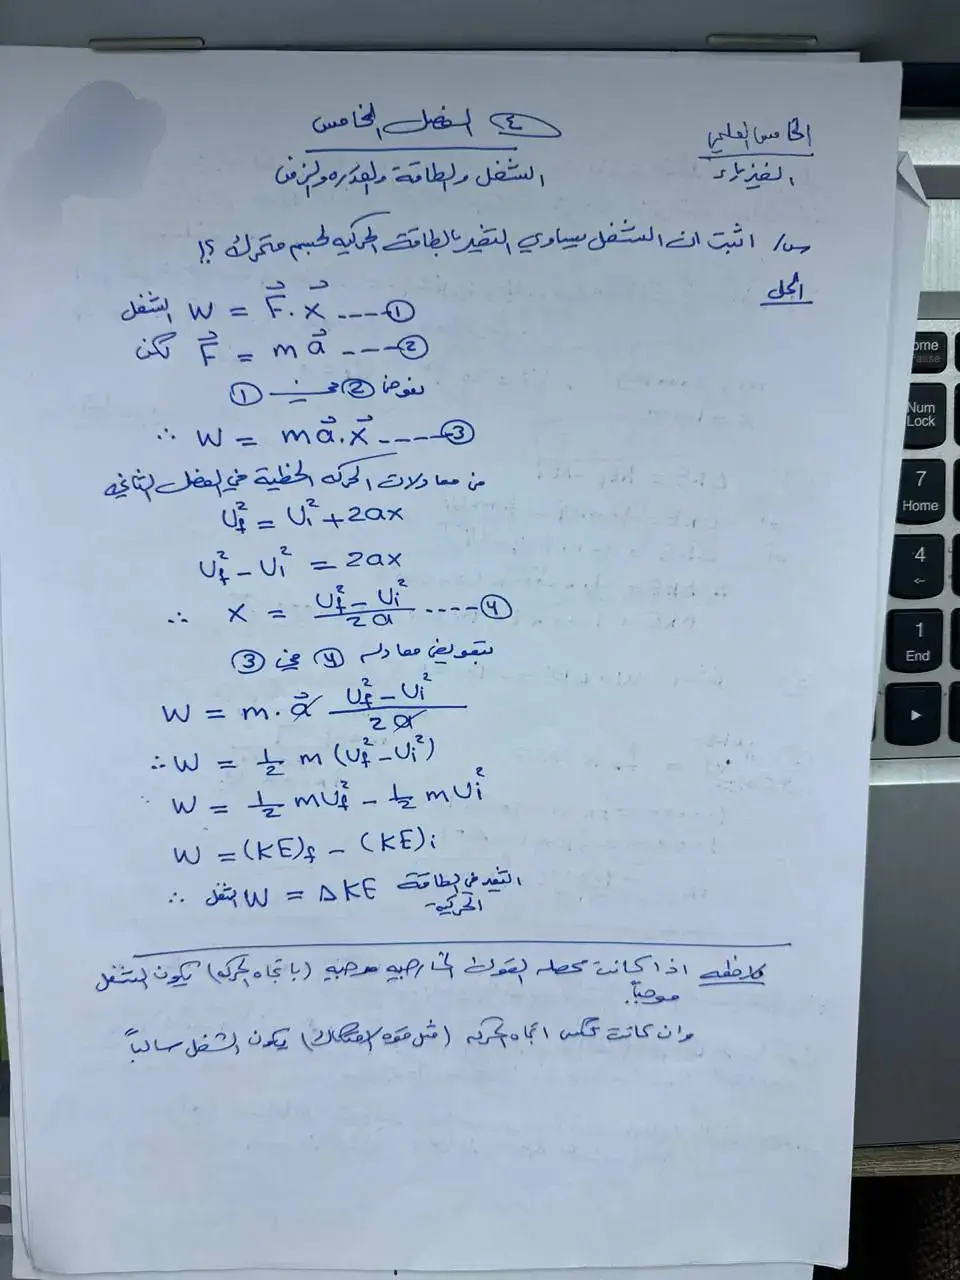 الخامس العلمي
الفيزياء
٤ الفصل الخامس
الشغل والطاقة والقدرة والزخم
س/ اثبت ان الشغل يساوي التغير بالطاقة الحركيه لجسم متحرك ؟!
الحل
الشغل W = F⃗ . x⃗ ----①
لكن F⃗ = m a⃗ ----②
نعوض ② في ①
∴ W = m a⃗ . x⃗ -----③
من معادلات الحركه الخطية في الفصل الثاني
υf² = υi² + 2ax
υf² - υi² = 2ax
∴ x = (υf² - υi²) / 2a ----④
بتعويض معادله ④ في ③
W = m . a⃗ (υf² - υi²) / 2a
∴ W = 1/2 m (υf² - υi²)
W = 1/2 mυf² - 1/2 mυi²
W = (KE)f - (KE)i
∴ الشغل W = Δ KE التغير في الطاقة الحركية
ملاحظه اذا كانت محصله القوى الخارجيه موجبه (باتجاه الحركه) يكون الشغل
موجباً.
وان كانت عكس اتجاه الحركه (مثل قوه الاحتكاك) يكون الشغل سالباً
Home
Pause
Num
Lock
7
Home
4
←
1
End